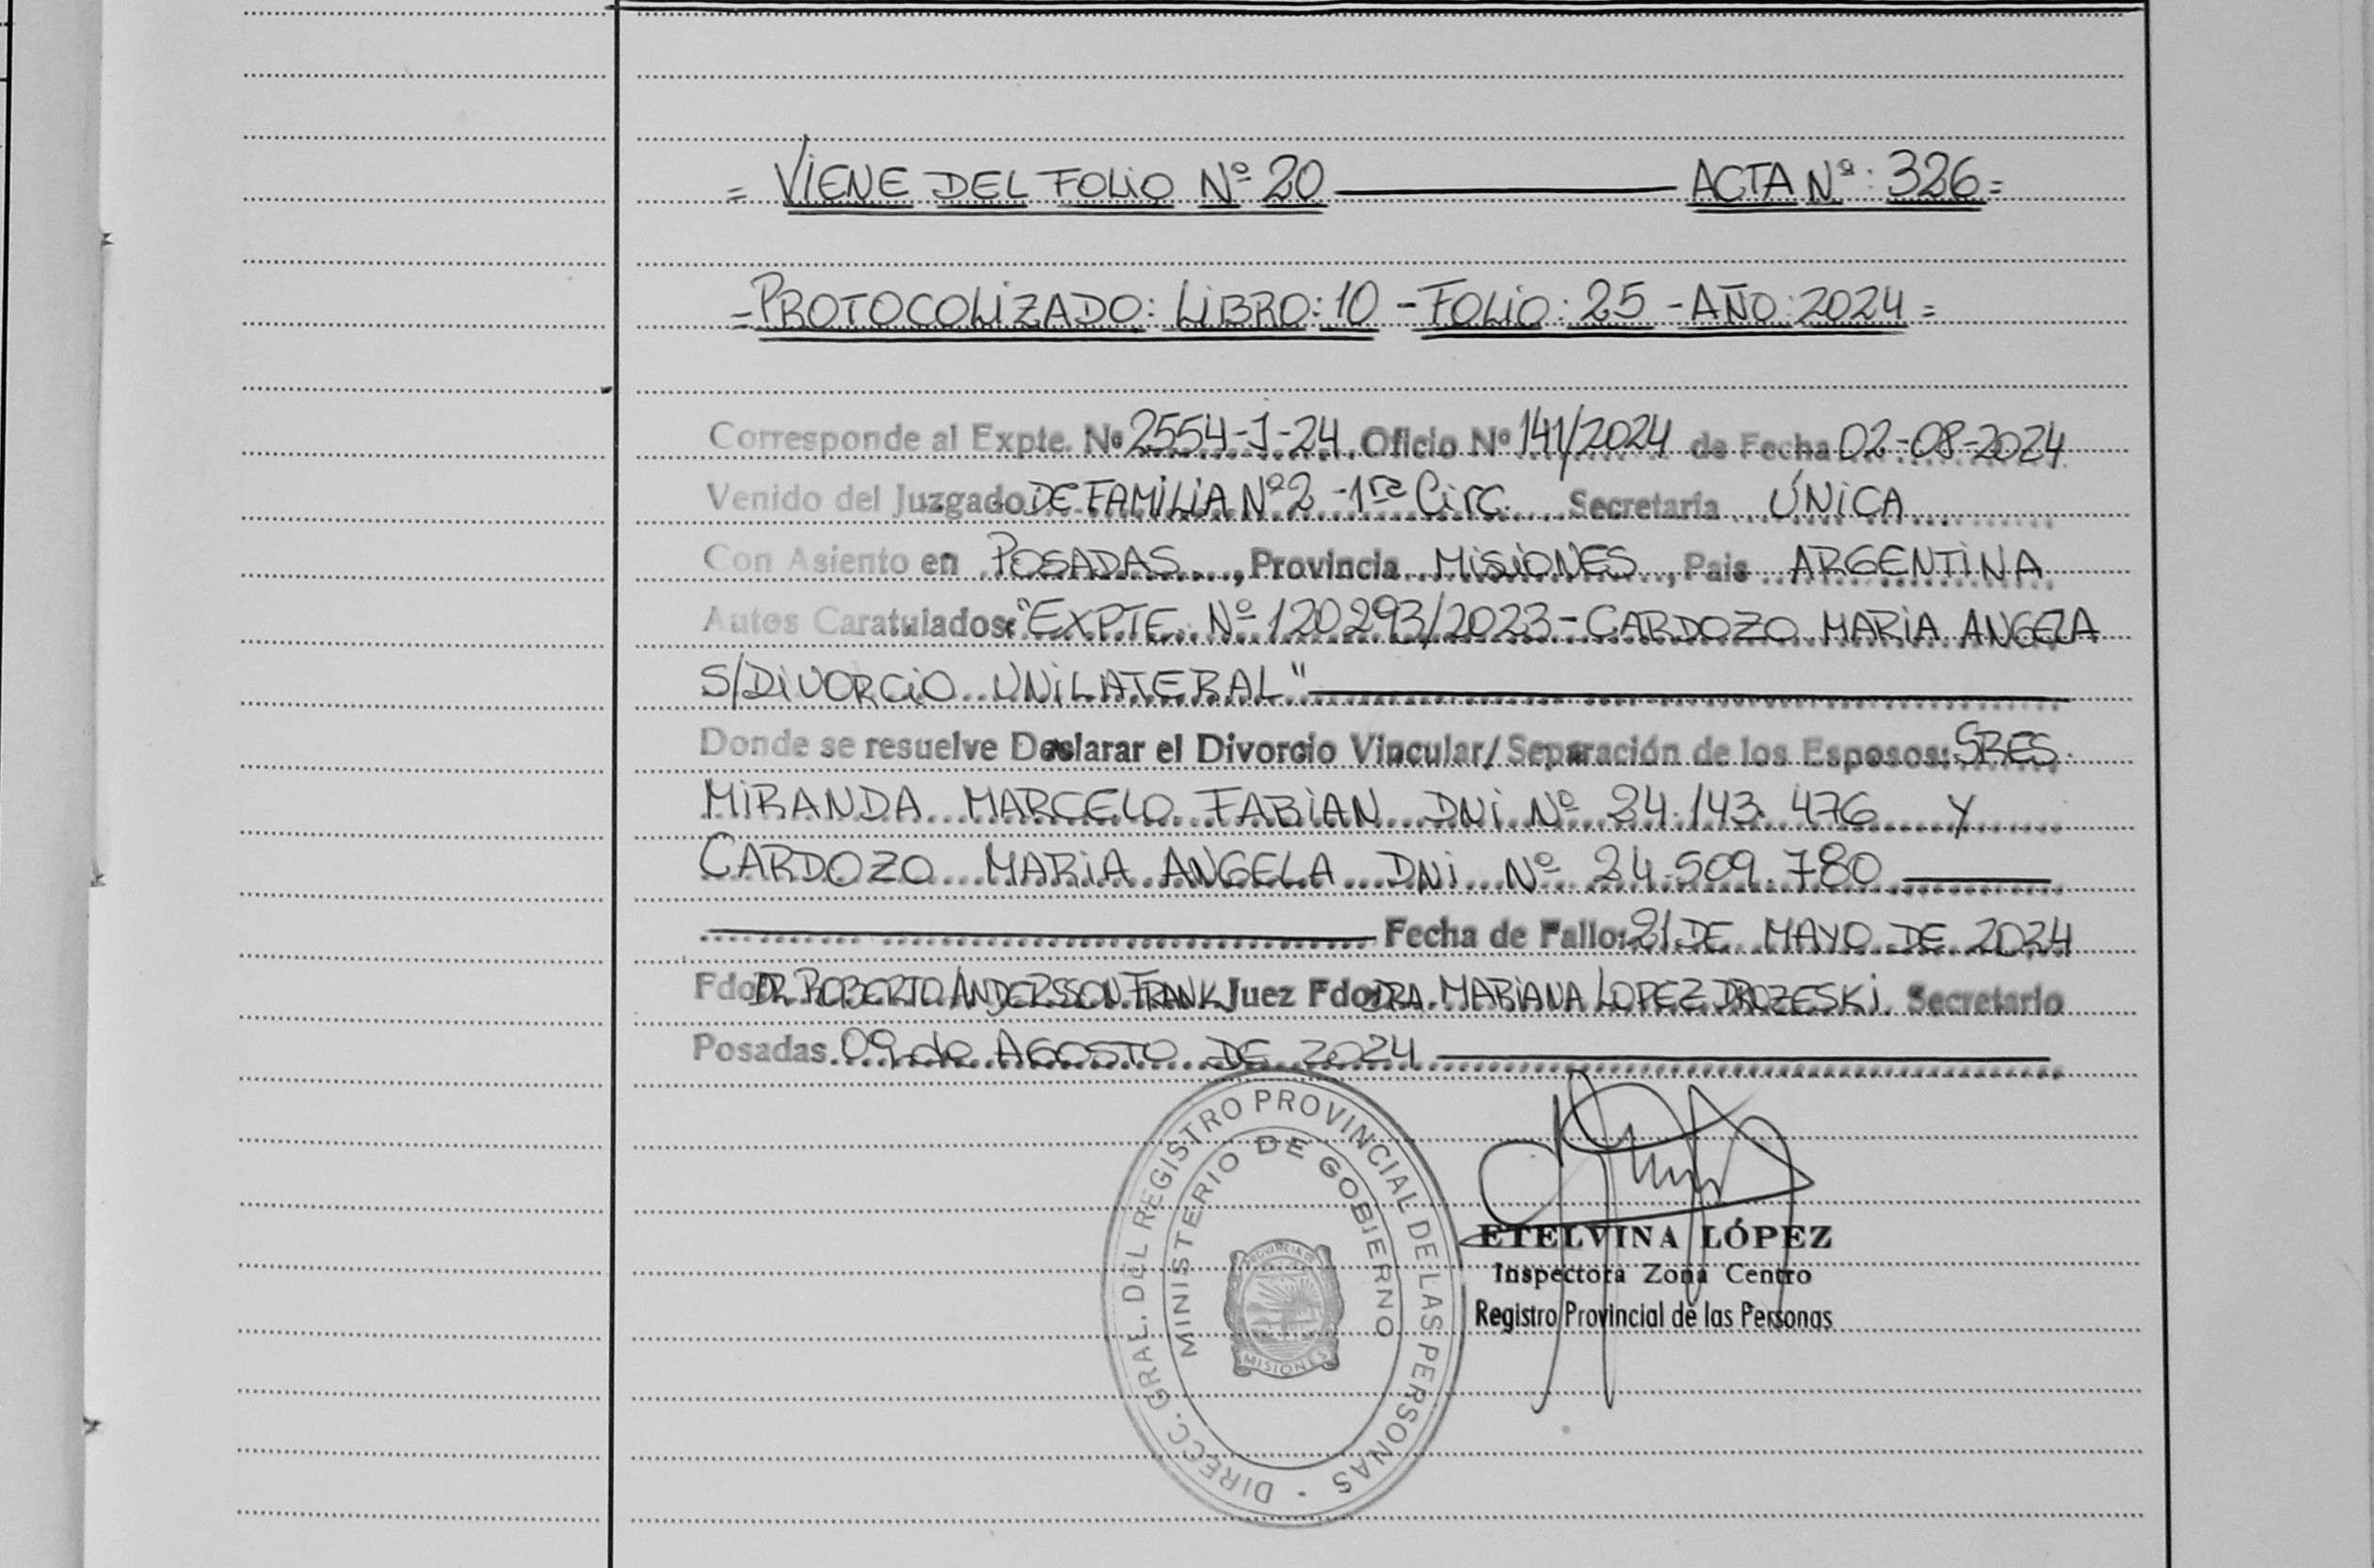 = VIENE DEL FOLIO Nº 20 ACTA Nº: 326 =
= PROTOCOLIZADO: LIBRO: 10 - FOLIO: 25 - AÑO: 2024 =
Corresponde al Expte. Nº 2554-J-24. Oficio Nº 141/2024 de Fecha 02-08-2024
Venido del Juzgado DE FAMILIA Nº 2 - 1ra Circ. Secretaría ÚNICA
Con Asiento en POSADAS, Provincia MISIONES, Pais ARGENTINA
Autos Caratulados: "EXPTE. Nº 120293/2023 - CARDOZO MARIA ANGELA
S/DIVORCIO UNILATERAL"
Donde se resuelve Declarar el Divorcio Vincular/Separación de los Esposos: SRES.
MIRANDA MARCELO FABIAN DNI Nº 24.143.476 Y
CARDOZO MARIA ANGELA DNI Nº 24.509.780
Fecha de Fallo: 21 DE MAYO DE 2024
Fdo. DR. ROBERTO ANDERSSON FRANK Juez Fdo. DRA. MARIANA LOPEZ DROZESKI. Secretario
Posadas 09 de AGOSTO DE 2024
DIRECC. GRAL. DEL REGISTRO PROVINCIAL DE LAS PERSONAS
MINISTERIO DE GOBIERNO
PROVINCIA DE
MISIONES
ETELVINA LÓPEZ
Inspectora Zona Centro
Registro Provincial de las Personas